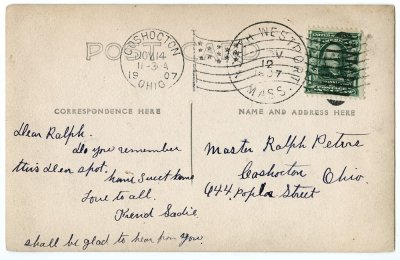 POST C
COSHOCTON
NOV 14
11-30A
1907
OHIO
WESTPORT
NOV
12
1907
MASS.
CORRESPONDENCE HERE
NAME AND ADDRESS HERE
Dear Ralph.
do you remember
this dear spot.
home sweet home
Love to all.
Friend Sadie
shall be glad to hear from you.
Master Ralph Peters
Coshocton Ohio.
644 Poplar Street